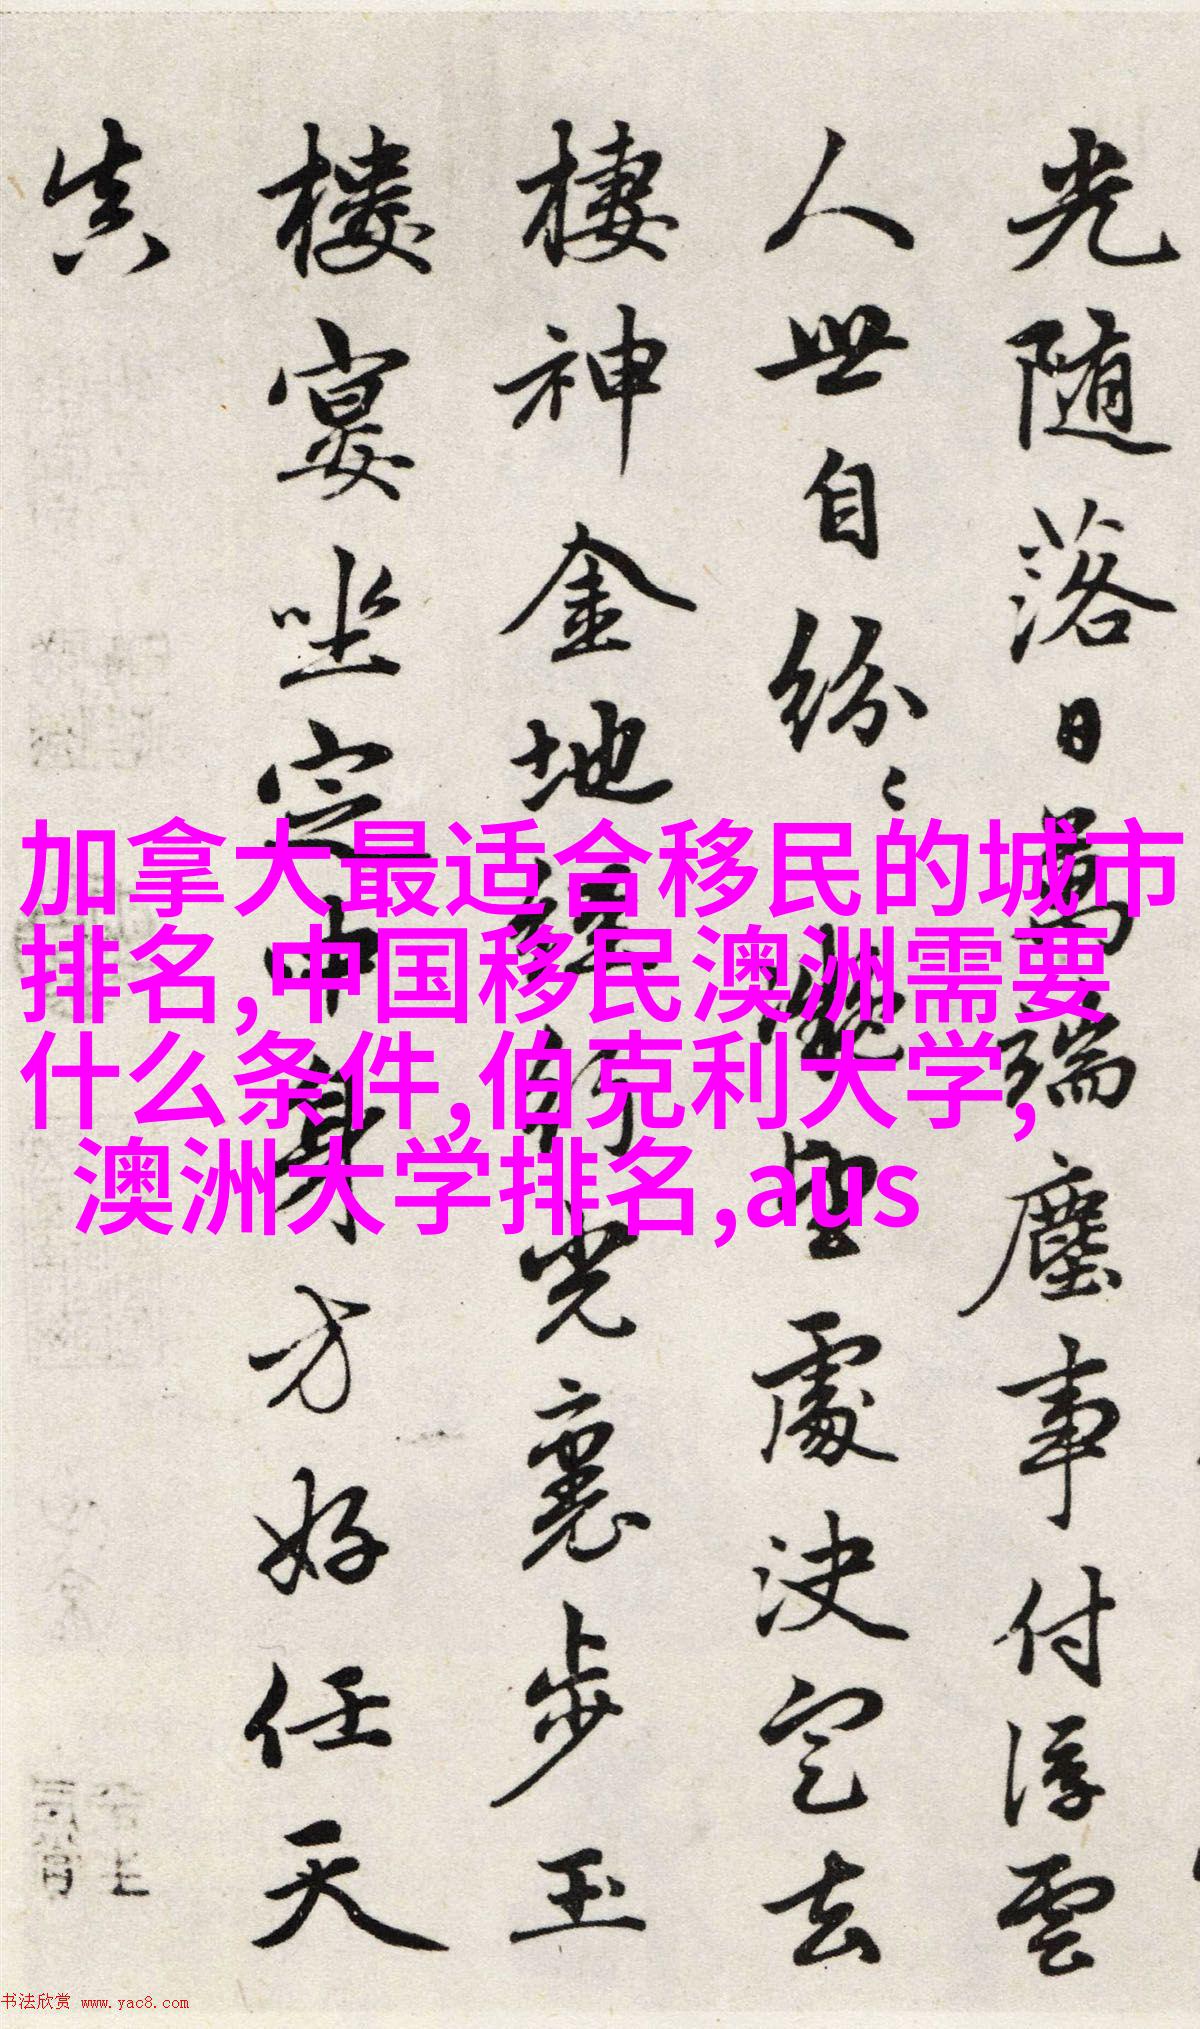 光随落日萬端塵事付浮雲
人世自紛〻望處决定去
棲神金地經行光裏步玉
樓宴坐定中身方好任天
真
加拿大最适合移民的城市
排名,中国移民澳洲需要
什么条件,伯克利大学,
澳洲大学排名,aus
书法欣赏 www.yac8.com